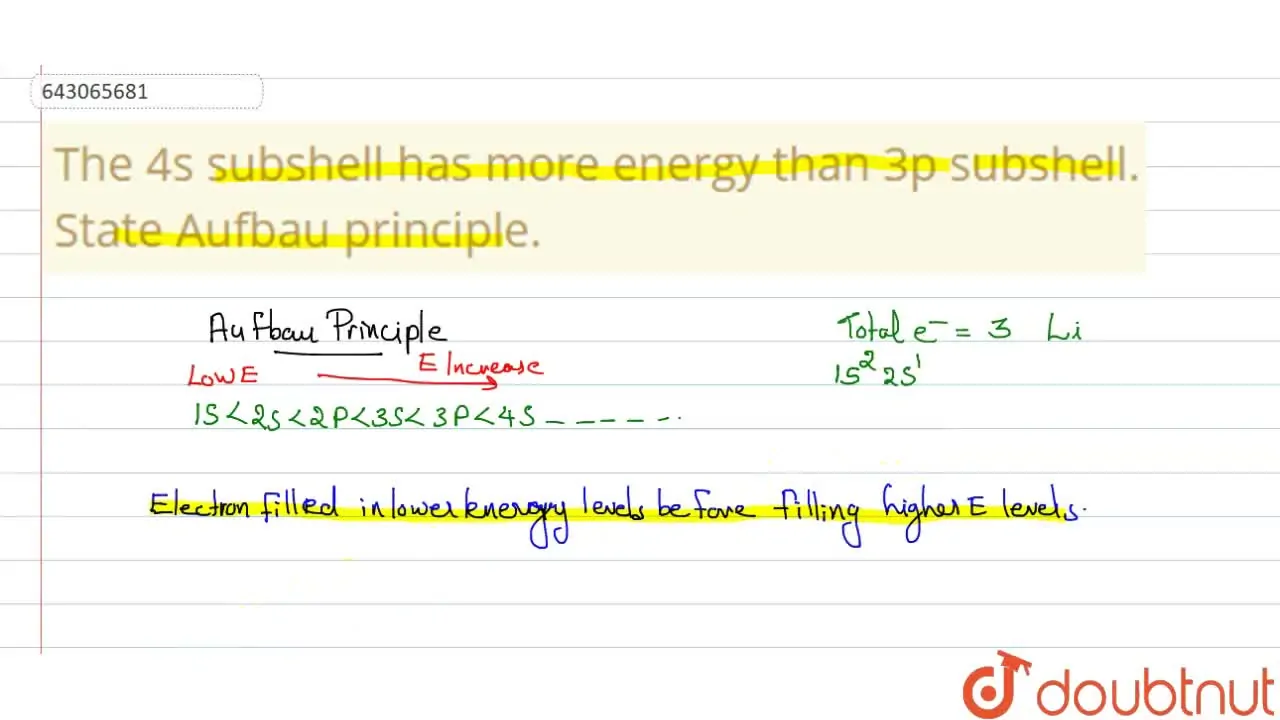 643065681
The 4s subshell has more energy than 3p subshell.
State Aufbau principle.
Aufbau Principle
Low E E Increase
1S < 2S < 2P < 3S < 3P < 4S – – – – –
Total e⁻ = 3 Li
1S² 2S¹
Electron filled in lower energy levels before filling higher E levels.
doubtnut